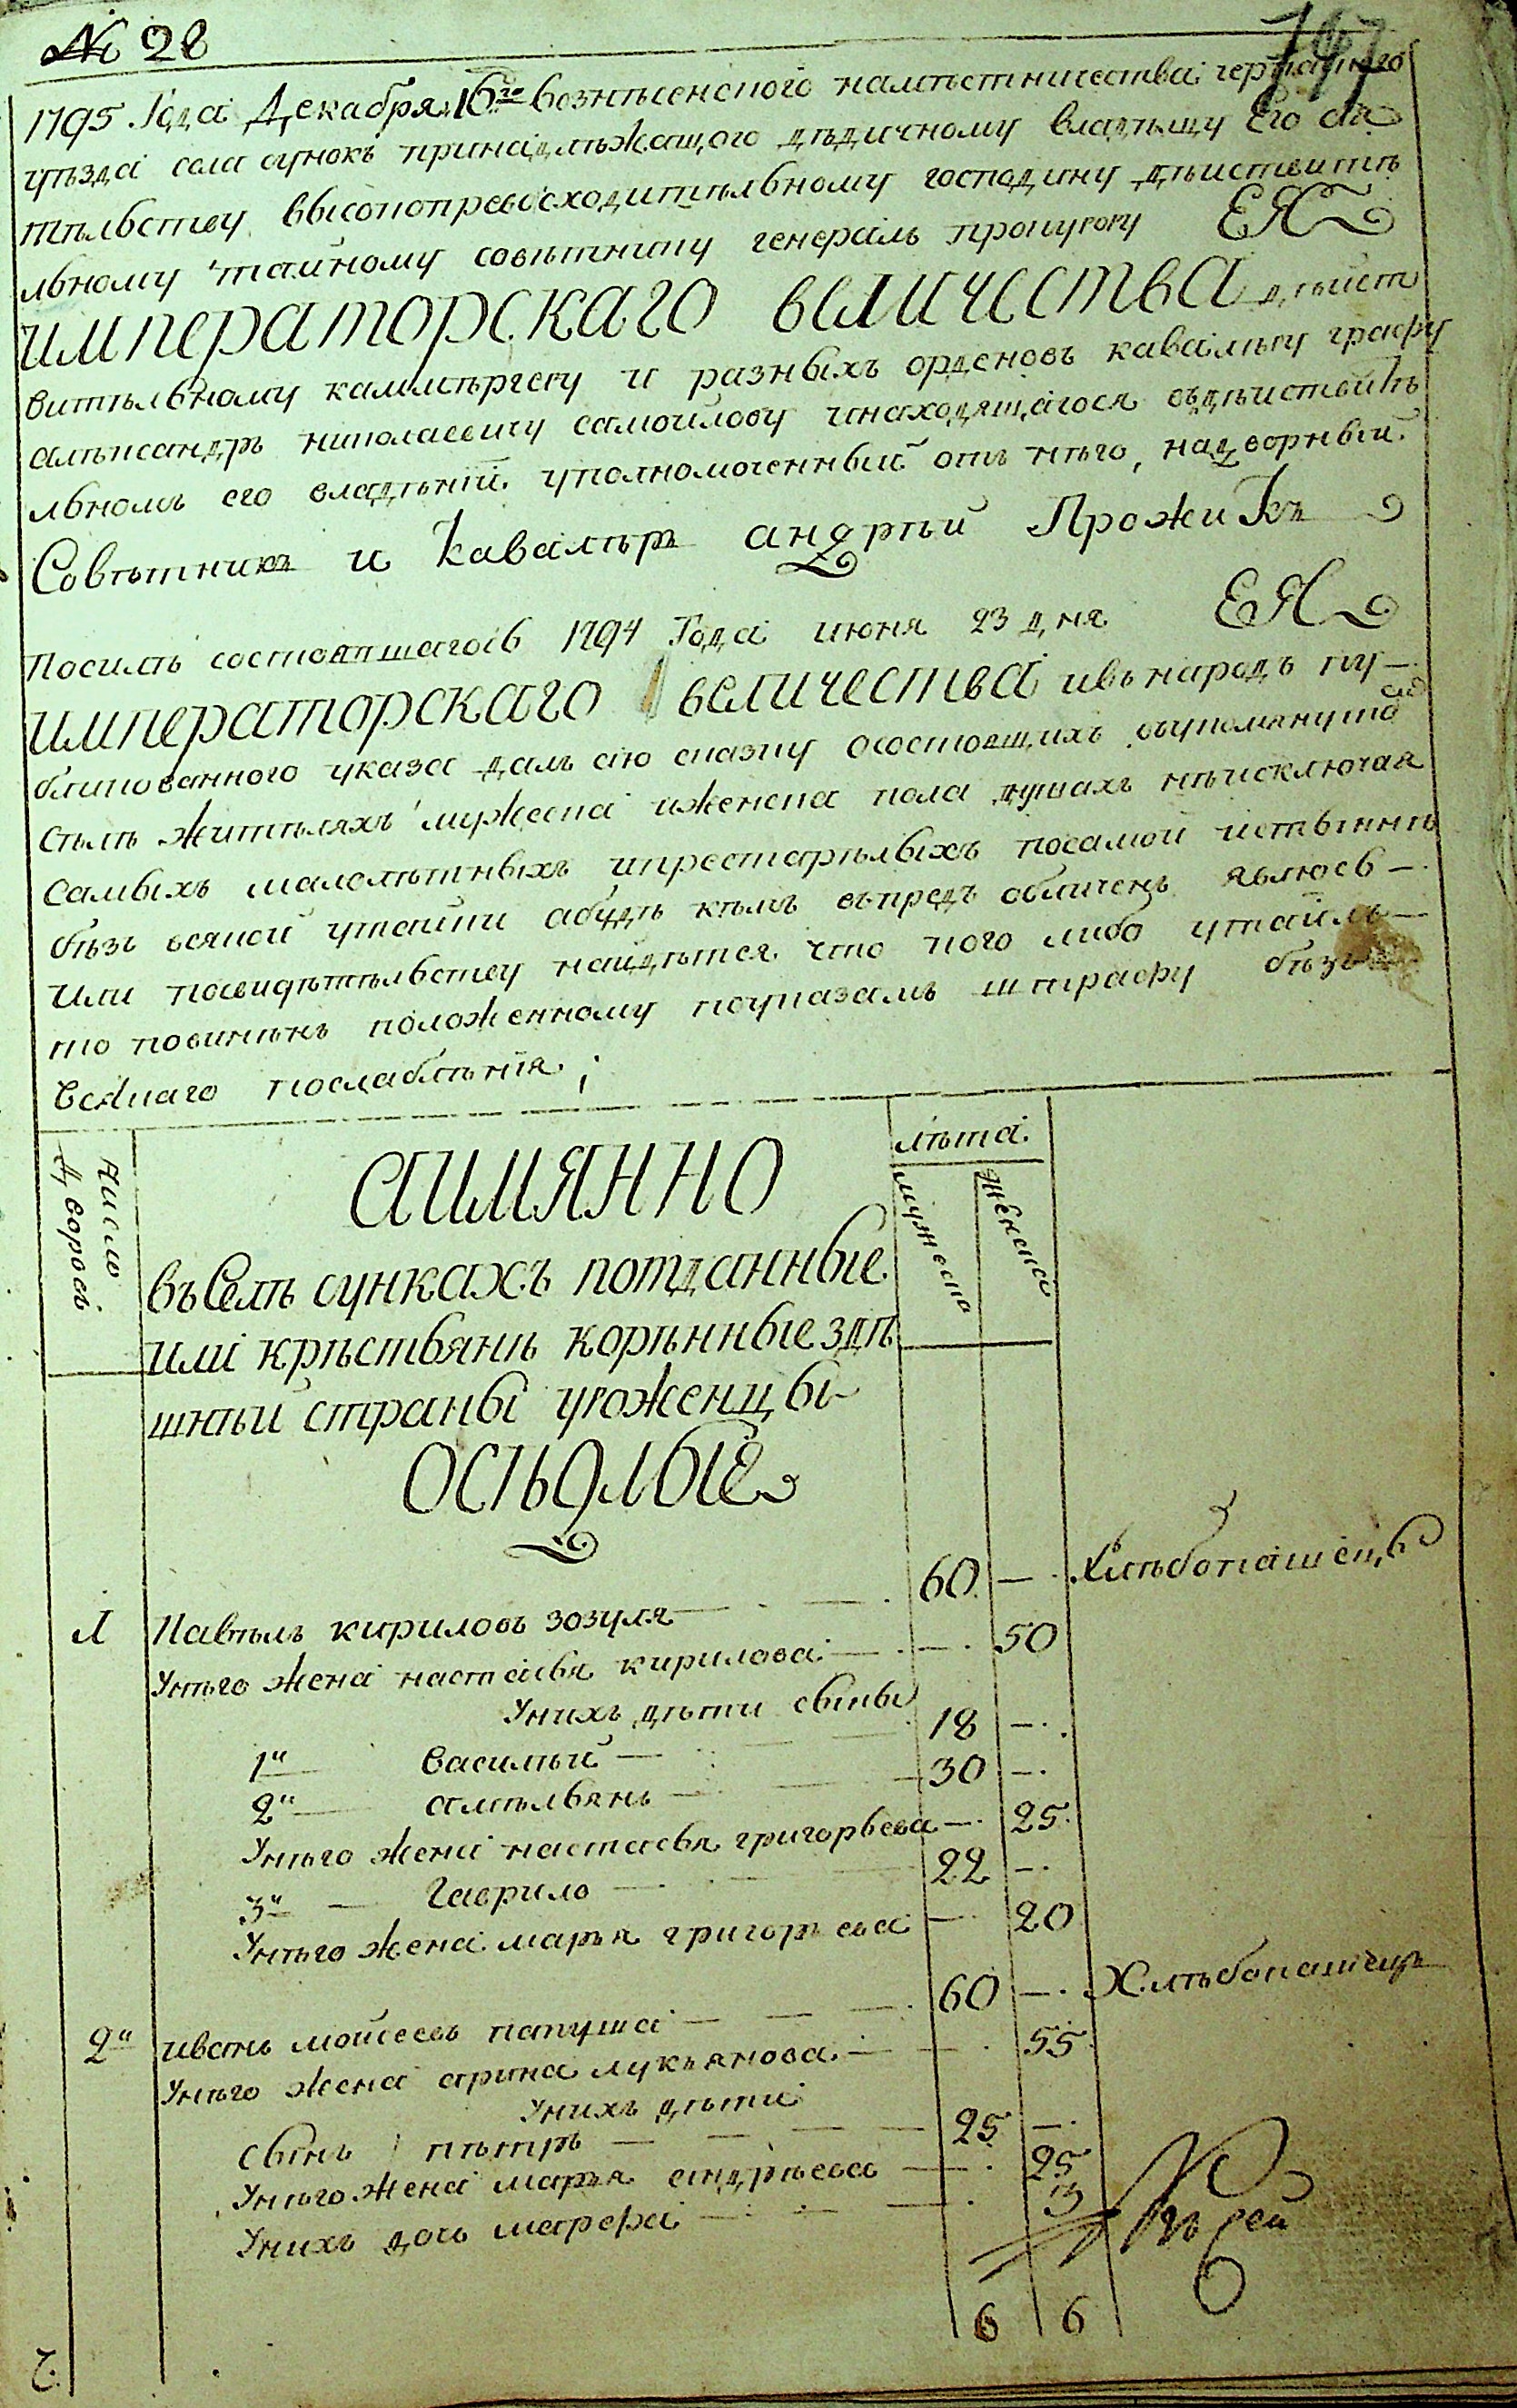 № 28
797
1795 Года Декабря 16го вознѣсенского намѣстничества черкаского
уѣзда села сунокъ принадлѣжащого дѣдичному владѣлцу Его сия
тѣльству высокопревосходитѣльному господину дѣиствитѣ
льному таиному совѣтнику генералъ прокурору ЕЯ
императорскаго величества дѣйст
витѣльному каммѣргеру и разныхъ орденовъ кавалѣру графу
алѣксандръ николаевичу самойлову инаходящагося въдѣиствитѣ
льномъ его владѣнии уполномоченный отъ нѣго, надворный
Совѣтникъ и кавалѣръ андрѣй Прожикъ
Посилѣ состоявшагось 1794 Года июня 23 дня ЕЯ
императорскаго величества ивънародъ пу
бликованного указа далъ сию сказку осостоящихъ въупомянутом
сѣлѣ житѣляхъ мужеска иженска пола душахъ нѣисключая
самыхъ малолѣтныхъ ипрестарѣлыхъ посамой иствиннѣ
бѣзъ всякой утайки абудѣ кѣмъ въпредь обличенъ явлюсь
или посвидѣтѣльству найдѣтся что кого либо утаилъ
то повинѣнъ положенному поуказамъ штрафу бѣзъ
всякаго послаблѣния;
число
дворовъ
аимянно
лѣта
мужеска
женска
въселѣ сункахъ потданные
или крѣстьянѣ корѣнные здѣ
шнѣй страны уроженцы
осѣдлые
1 Павѣлъ кириловъ зозуля 60 — хлѣбопашецъ
Унѣго жена настасья кирилова — 50
Унихъ дѣти сыны
1й василѣй 18 —
2й амѣльянъ 30 —
Унѣго жена настасья григорьева — 25
3й Гаврило 22 —
Унѣго жена марья григорьева — 20
2й иванъ мойсеевъ папуша 60 — Хлѣбопашецъ
Унѣго жена арина лукьянова — 55
Унихъ дѣти
сынъ пѣтръ 25 —
Унѣго жена марья андрѣева — 25
Унихъ дочь мафефа — 3
6 6